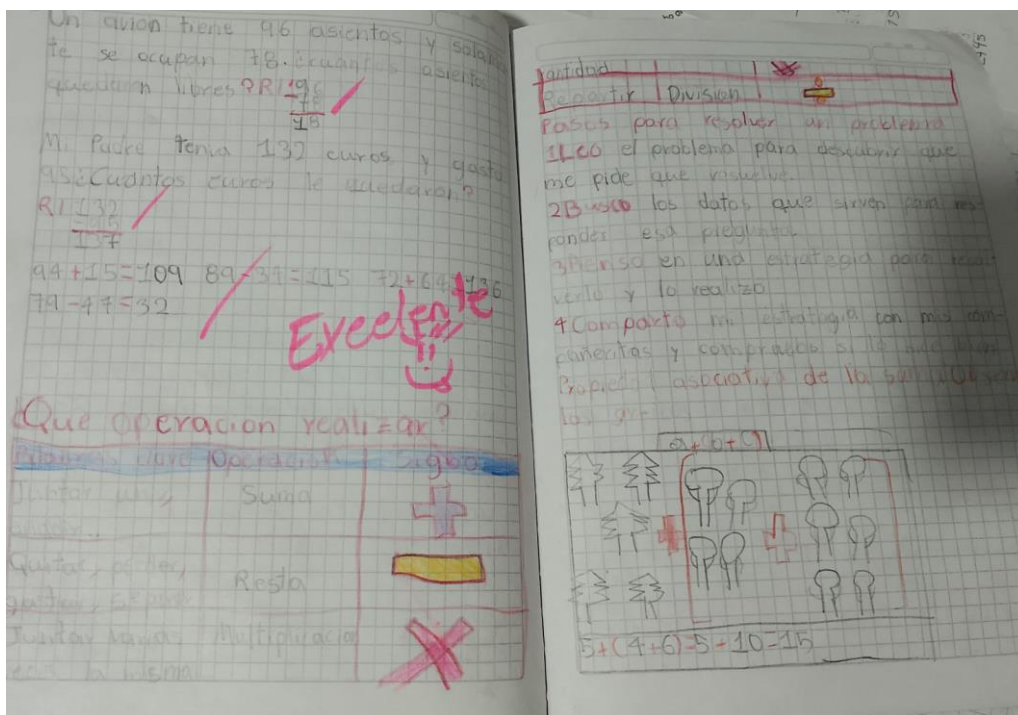 Un avion tiene 96 asientos y solamen
te se ocupan 78.¿cuantos asientos
quedaran libres?R/ 96
78
18
Mi Padre tenia 132 euros y gasto
95¿Cuántos euros le quedaran?
R/ 132
95
137
94+15=109 89-37=115 72+64=136
79-47=32
Exelente
¿Que operacion realizar?
Palabras clave Operación Signo
Juntar, unir,
añadir.. Suma +
Quitar, perder,
gastar, Resta
Juntar varias Multiplicacion X
veces la misma
cantidad
Repartir Division ÷
Pasos para resolver un problema
1Leo el problema para descubrir que
me pide que resuelva.
2Busco los datos que sirven para res
ponder esa pregunta
3Pienso en una estrategia para resol
verlo y lo realizo
4Comparto mi estrategia con mis com
pañeritas y compruebo si lo hice bien
Propiedad asociativa de la suma
los
a+(b+c)
+ +
5+(4+6)=5+10=15